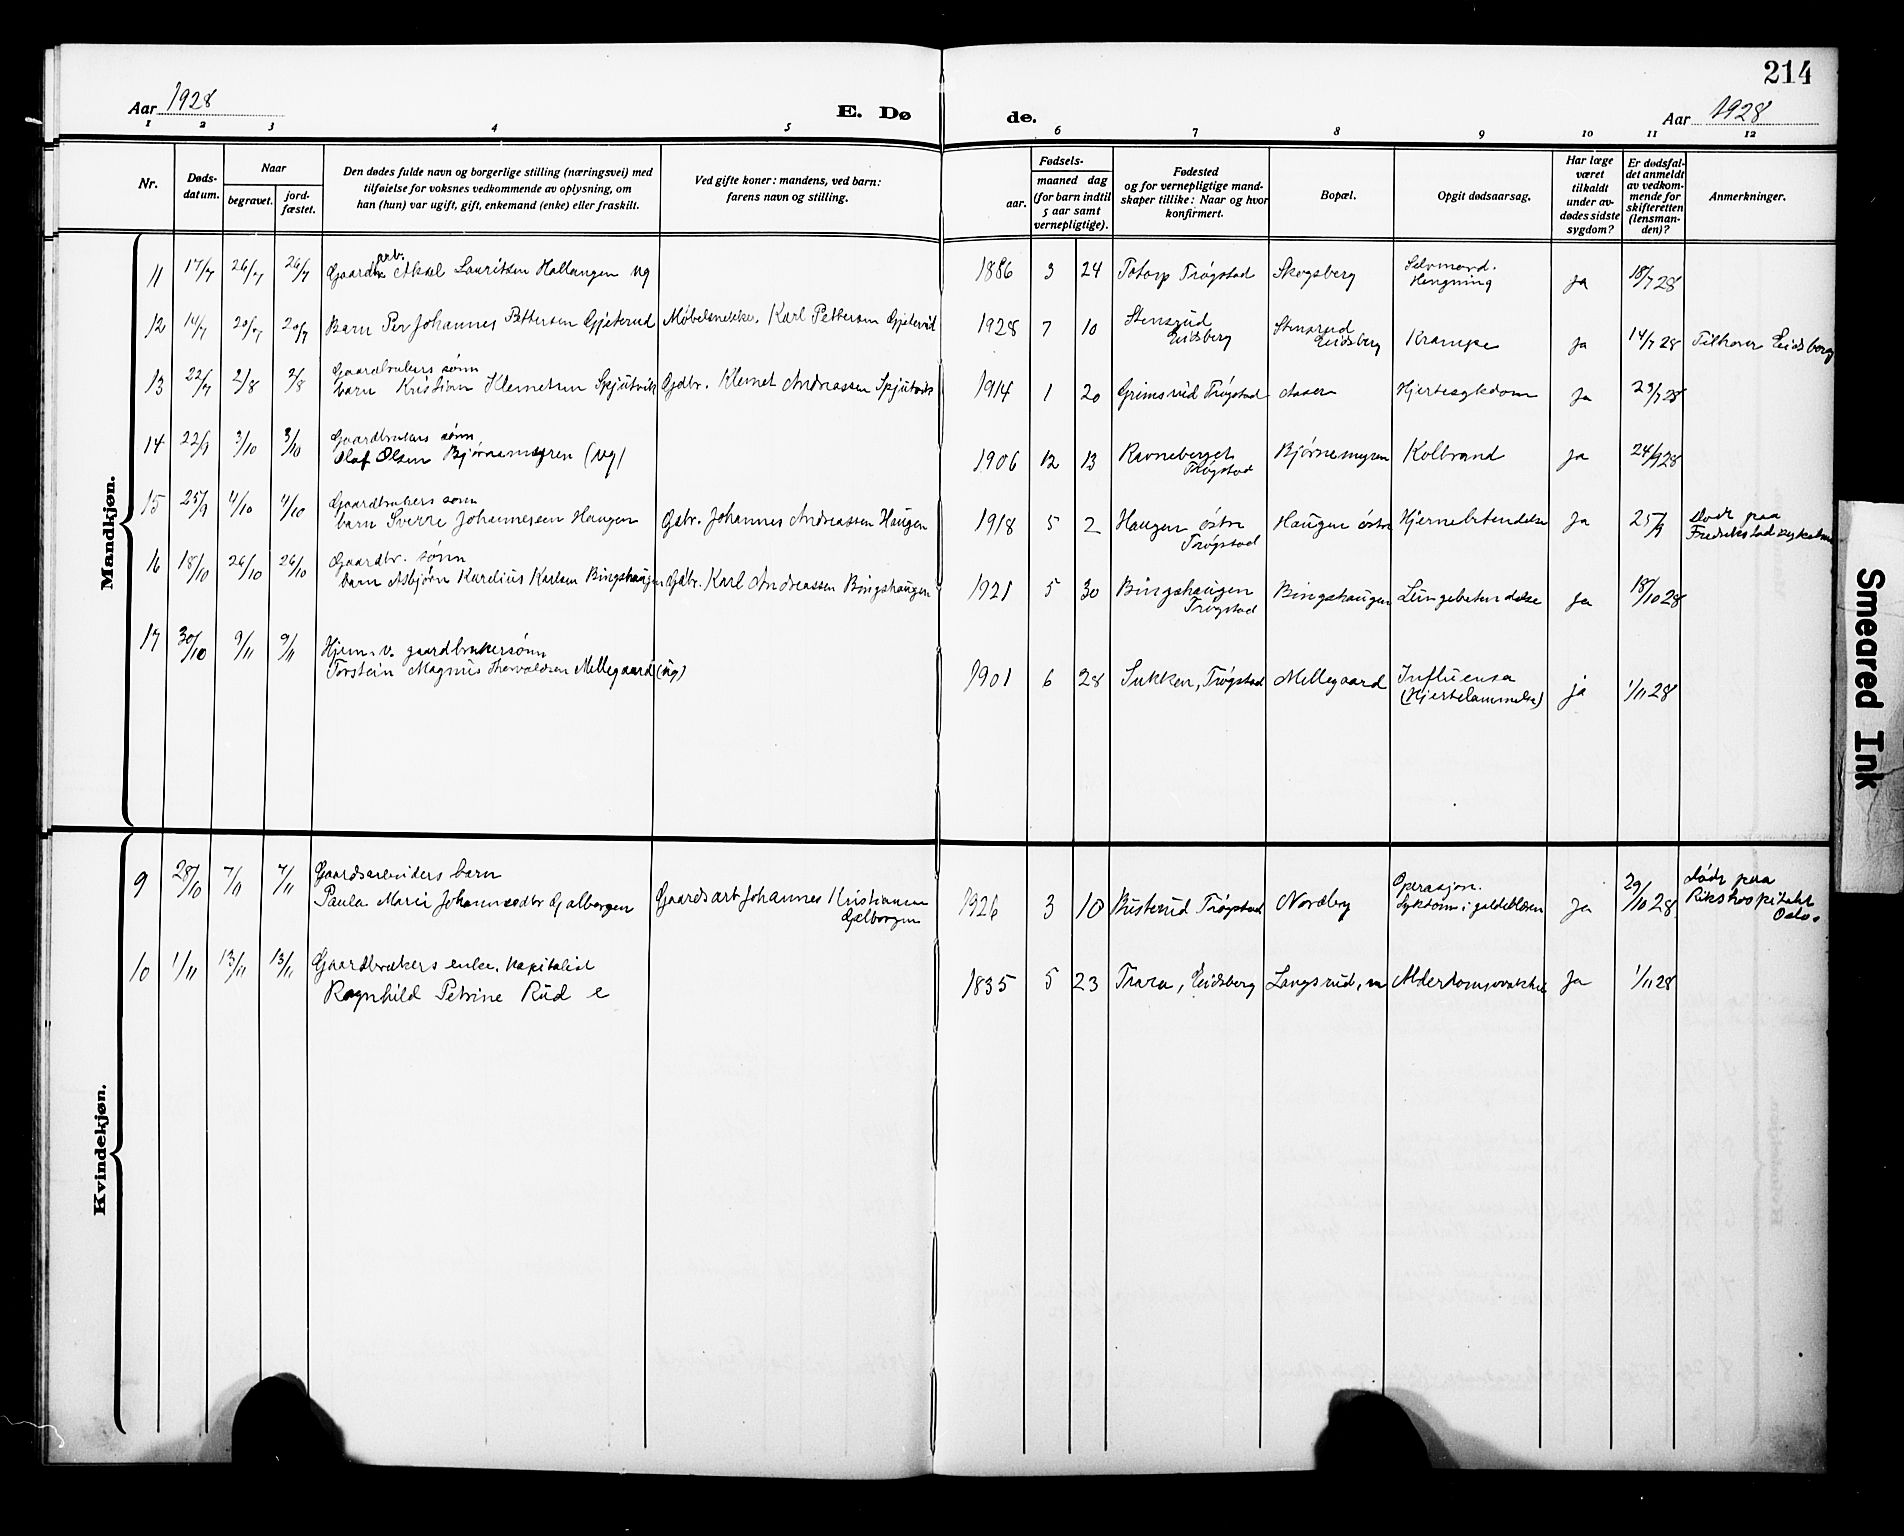 214
Aar 1928
E. Dø
de.
Aar 1928
1 2 3 4 5 6 7 8 9 10 11 12
Nr.
Døds-
datum.
Naar
begravet.
jord-
fæstet.
Den dødes fulde navn og borgerlige stilling (næringsvei) med
tilføielse for voksnes vedkommende av oplysning, om
han (hun) var ugift, gift, enkemand (enke) eller fraskilt.
Ved gifte koner: mandens, ved barn:
farens navn og stilling.
Fødsels-
aar.
maaned dag
(for barn indtil
5 aar samt
vernepligtige).
Fødested
og for vernepligtige mand-
skaper tillike: Naar og hvor
konfirmert.
Bopæl.
Opgit dødsaarsag.
Har læge
været
tilkaldt
under av-
dødes sidste
sygdom?
Er dødsfal-
det anmeldt
av vedkom-
mende for
skifteretten
(lensman-
den)?
Anmerkninger.
Mandkjøn.
11 17/7 26/7 26/7 Gaardarb. Aksel Lauritsen Hallangen ug 1886 3 24 Totorp Trøgstad Skogsberg Selvmord.
Hengning ja 18/7 28
12 14/7 20/7 20/7 Barn Per Johannes Pettersen Gjeterud Møbelsnekk. Karl Pettersen Gjeterud 1928 7 10 Stensrud
Eidsberg Stensrud
Eidsberg Krampe ja 14/7 28 Tilhører Eidsberg
13 22/7 2/8 2/8 Gaardbrukers sønn
barn Kristian Klemetsen Spjutvik Gdbr. Klemet Andreassen Spjutvik 1914 1 20 Grimsrud Trøgstad Hjertesykdom ja 23/7 28
14 22/9 3/10 3/10 Gaardbrukers sønn
Olaf Olsen Bjørnemyren (ug) 1906 12 13 Ravneberget
Trøgstad Bjørnemyren Kolbrand ja 24/9 28
15 25/9 4/10 4/10 Gaardbrukers sønn
barn Sverre Johannesen Haugen Gdbr. Johannes Andreassen Haugen 1918 5 2 Haugen østre
Trøgstad Haugen østre Hjernebetendelse Ja 25/9 Døde paa
Fredrikstad sykehus
16 18/10 26/10 26/10 Gaardbr. sønn
barn Asbjørn Karelius Karlsen Bingshaugen Gdbr. Karl Andreassen Bingshaugen 1921 5 30 Bingshaugen
Trøgstad Bingshaugen Lungebetendelse ja 19/10 28
17 30/10 9/11 9/11 Hjem. v. gaardbrukersønn
Torstein Magnus Thorvaldsen Mellegaard (ug) 1901 6 28 Sukken, Trøgstad Mellegaard Influensa
(Hjertelammelse) ja 1/11 28
Kvindekjøn.
9 28/10 7/11 7/11 Gaardsarbeiders barn
Paula Marie Johannesdtr Galborgen Gaardsarb Johannes Kristiansen
Galborgen 1926 3 10 Busterud Trøgstad Nordby Operasjon.
Sykdom i galdeblæren Ja 29/10 28 døde paa
Rikshospitalet
Oslo.
10 1/11 13/11 13/11 Gaardbrukers enke. kapitalist
Ragnhild Petrine Rud e 1835 5 23 Trara, Eidsberg Langsrud, Alderdomssvakhet Ja 1/11 28
Smeared Ink